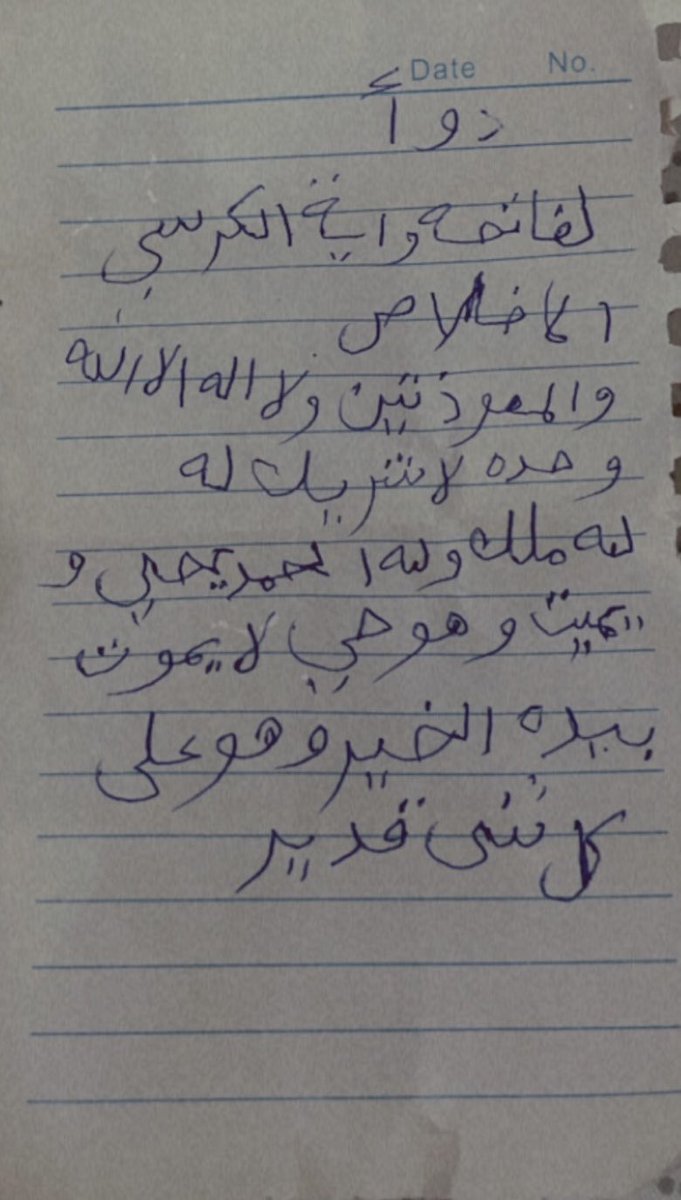 Date No.
دوأ
لفاتحه واية الكرسي
الاخلاص
والمعوذتين ولا اله الا الله
وحده لا شريك له
له ملك وله الحمد يحيي و
يميت وهو حي لا يموت
بيده الخير وهو على
كل شى قدير